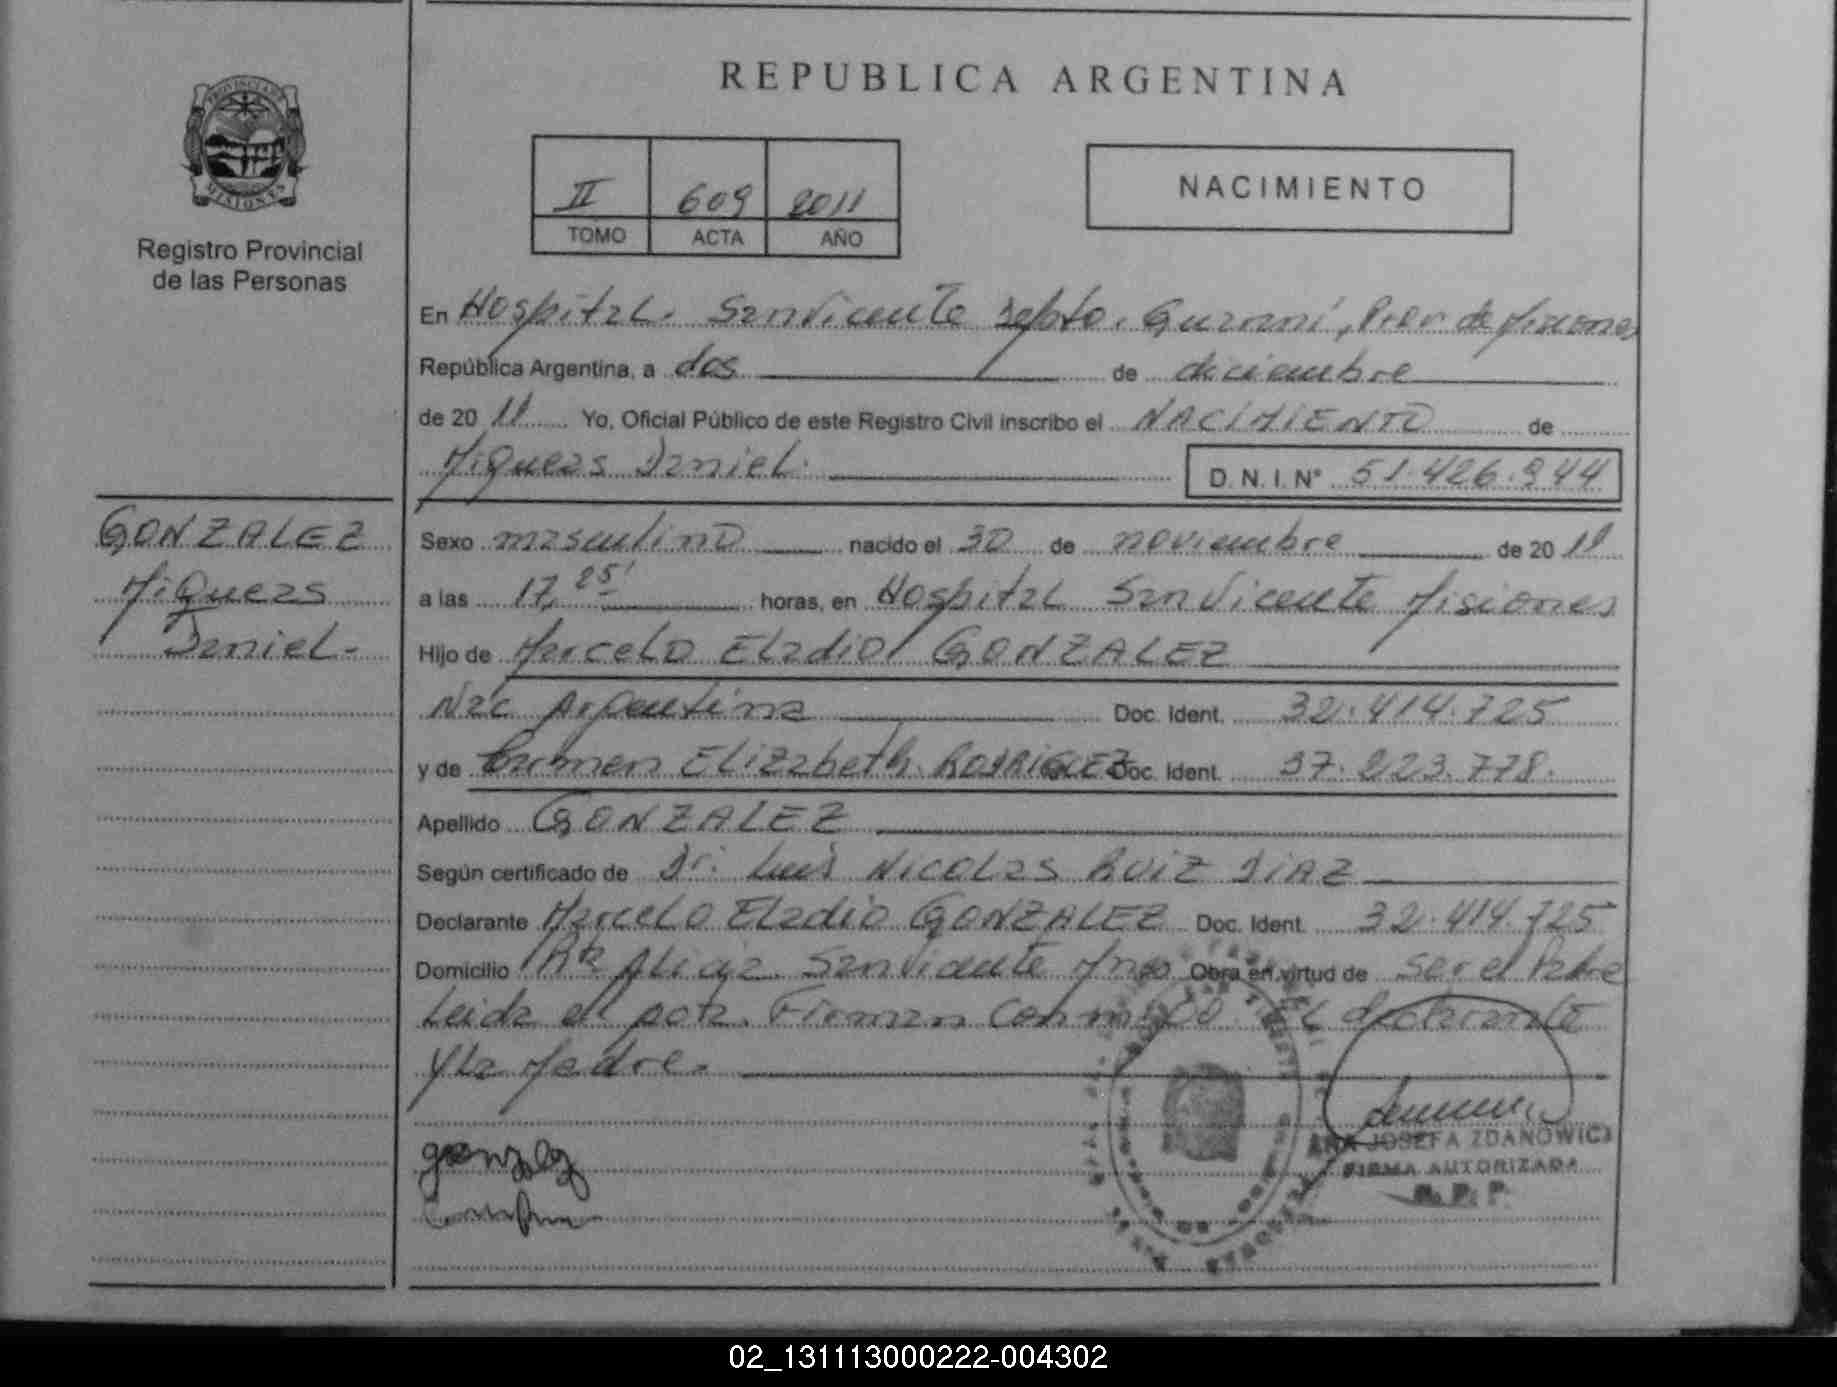 REPUBLICA ARGENTINA
PROVINCIA DE
MISIONES
Registro Provincial
de las Personas
II 609 2011
TOMO ACTA AÑO
NACIMIENTO
En Hospital. San Vicente Depto. Guaraní, Prov. de Misiones
República Argentina, a dos de diciembre
de 20 11 Yo, Oficial Público de este Registro Civil inscribo el NACIMIENTO de
Miqueas Daniel. D. N. I. N° 51.426.944
GONZALEZ
Miqueas
Daniel-
Sexo masculino nacido el 30 de noviembre de 20 11
a las 17,25' horas, en Hospital San Vicente Misiones
Hijo de Marcelo Eladio GONZALEZ
Nac Argentina Doc. Ident. 32.414.725
y de Carmen Elizabeth RODRIGUEZ Doc. Ident. 37.223.778.
Apellido GONZALEZ
Según certificado de Dr. Luis Nicolas RUIZ DIAZ
Declarante Marcelo Eladio GONZALEZ Doc. Ident. 32.414.725
Domicilio Alicia San Vicente Mnes Obra en virtud de ser el Padre
Leida el acta. Firman conmigo El declarante
y la Madre.
gonzalez
ANA JOSEFA ZDANOWICZ
FIRMA AUTORIZADA
R. P. P.
02_131113000222-004302